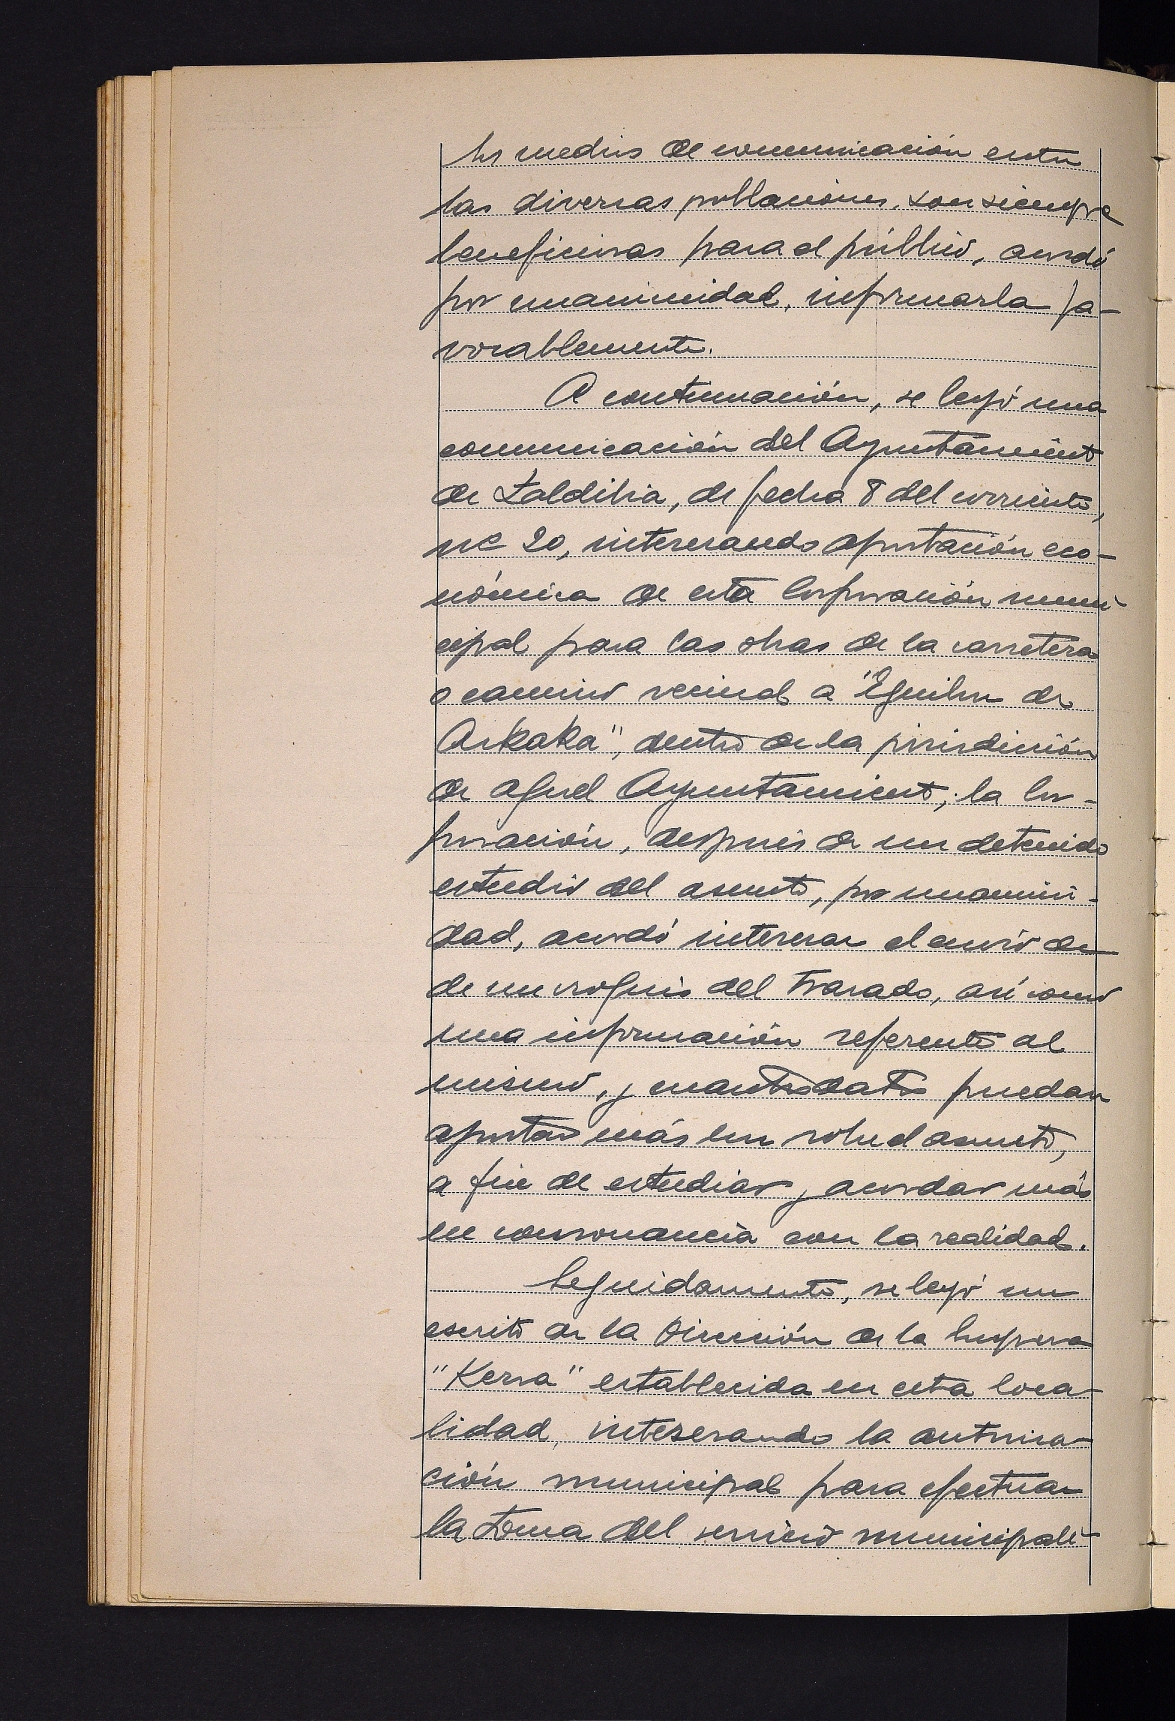 los medios de comunicación entre
las diversas poblaciones, son siempre
beneficiosas para el público, acordó
por unanimidad, informarla fa-
vorablemente.
A continuación, se leyó una
comunicación del Ayuntamiento
de Zaldibia, de fecha 8 del corriente,
nº 20, interesando aportación eco-
nómica de esta Corporación muni-
cipal para las obras de la carretera
o camino vecinal a "Eguilun de
Arkaka", dentro de la jurisdicción
de aquel Ayuntamiento; la Cor-
poración, después de un detenido
estudio del asunto, por unanimi-
dad, acordó interesar el envío de
de un croquis del trazado, así como
una información referente al
mismo, y cuantos datos puedan
aportar más sobre el asunto,
a fin de estudiar y acordar más
en consonancia con la realidad.
Seguidamente, se leyó un
escrito de la Dirección de la Empresa
"Kersa" establecida en esta loca-
lidad, interesando la autoriza-
ción municipal para efectuar
la toma del servicio municipali-